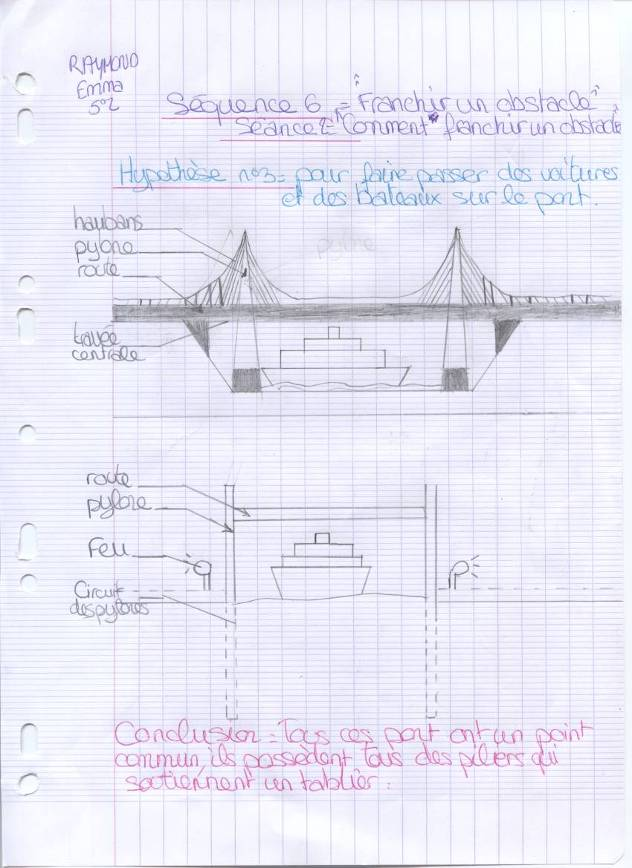 RAYMOND
Emma
5°2
Séquence 6 = "Franchir un obstacle"
Séance 2 = "Comment" franchir un obstacle
Hypothèse n°3 = pour faire passer des voitures
et des bateaux sur le pont.
haubans
pylone
route
travée
centrale
pylne
route
pylone
Feu
Circuit
des pylones
Conclusion = Tous ces pont ont un point
commun, ils possèdent tous des piliers qui
soutiennent un tablier.